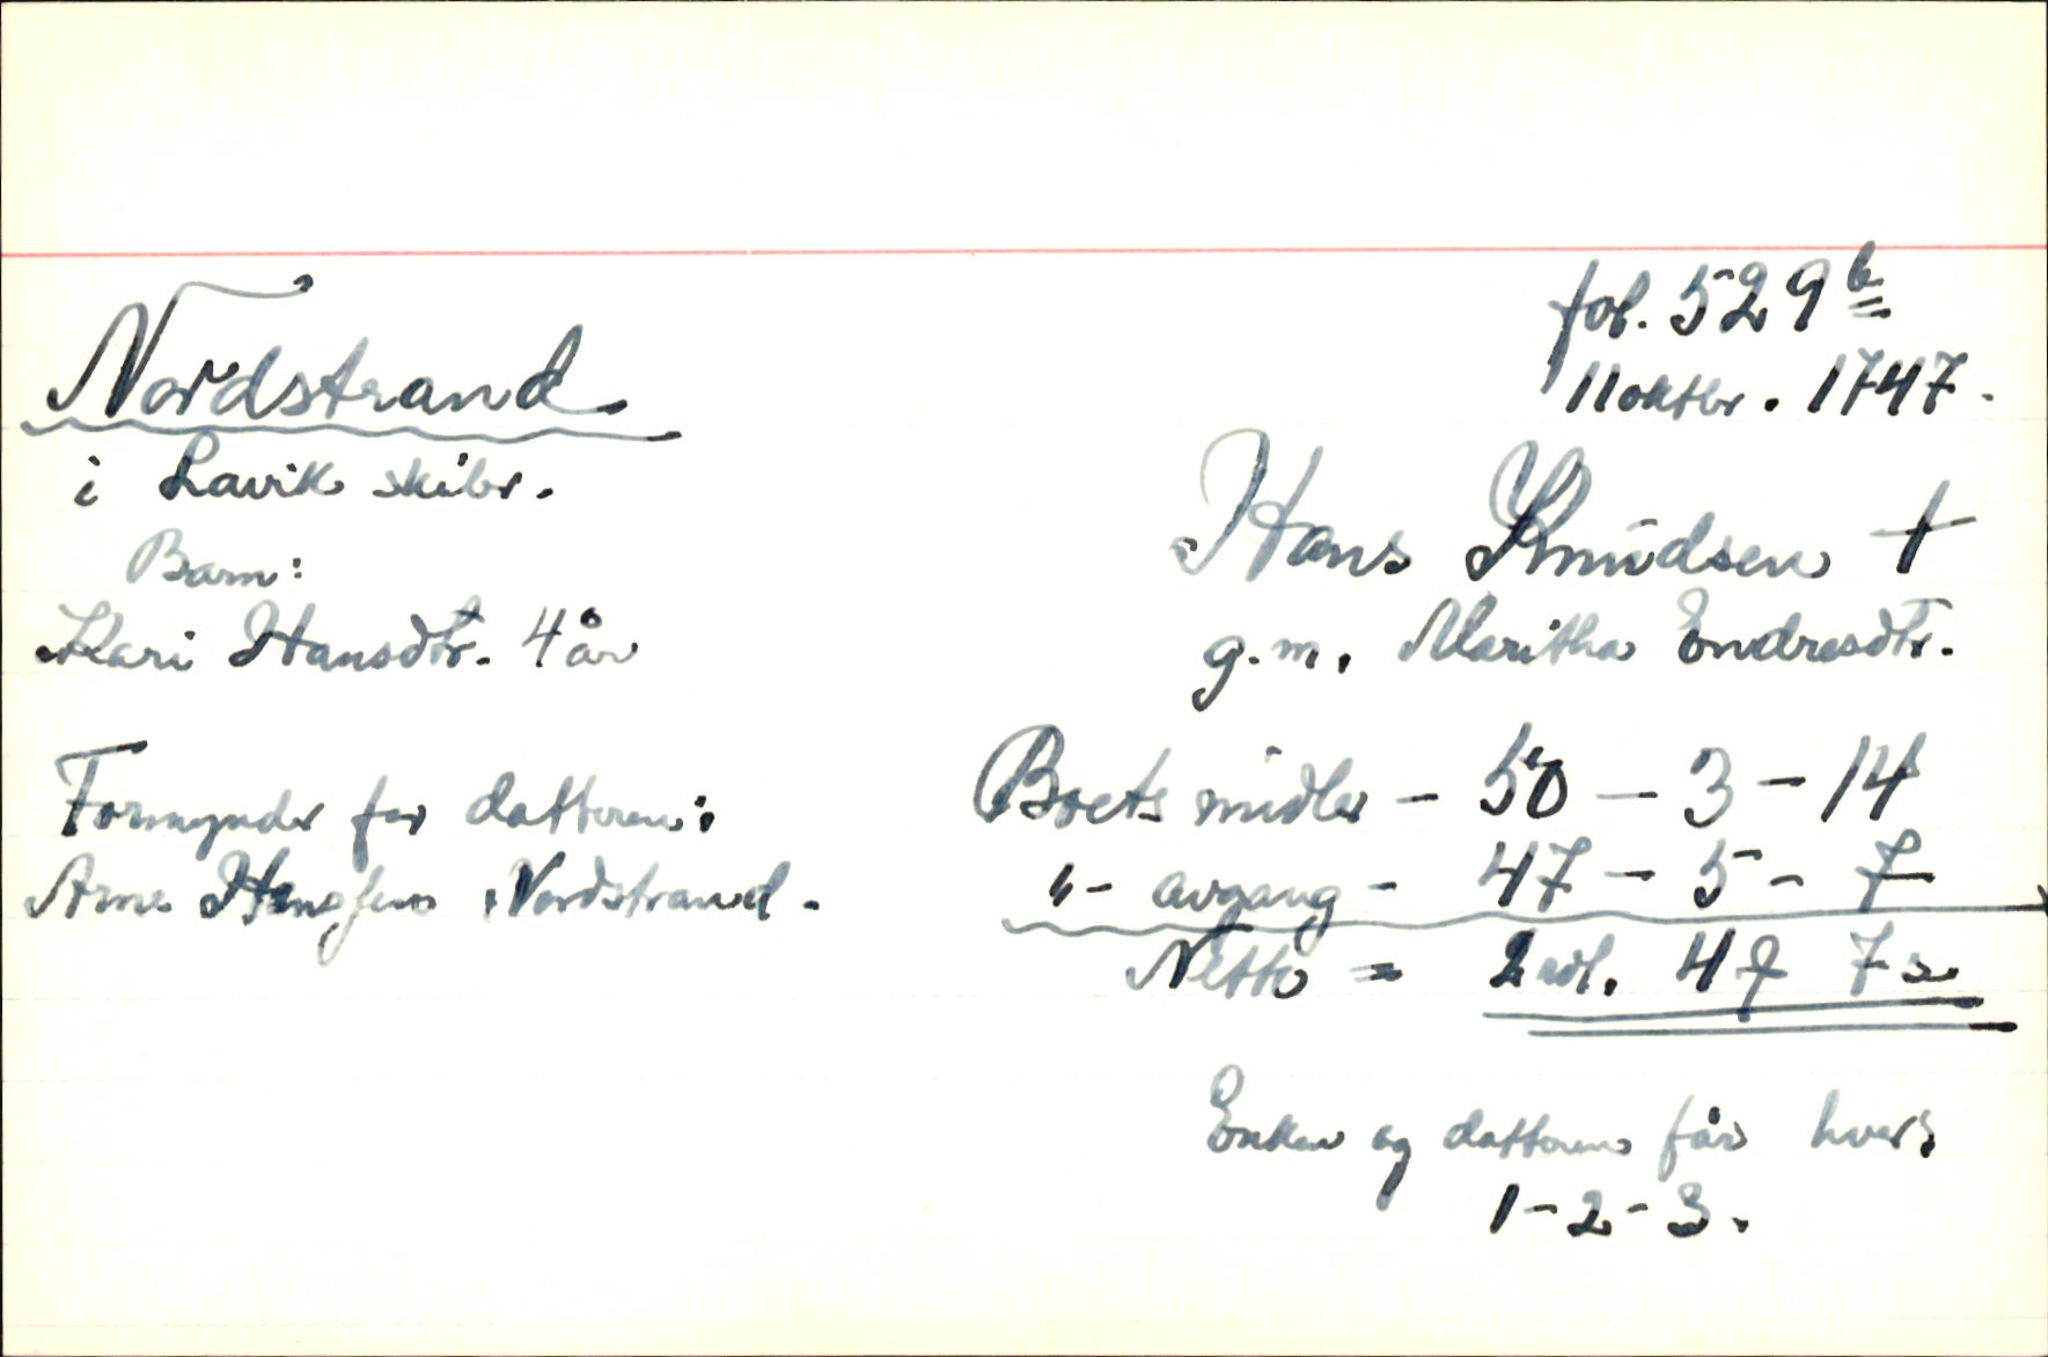 fol. 529 b
11 oktbr. 1747.
Nordstrand
i Lavik skibr.
Hans Knudsen +
g.m. Maritha Endresdtr.
Barn:
Kari Hansdtr. 4 år
Formynder for datteren:
Arne Nordstrand.
Boets midler - 50 - 3 - 14
"- avgang - 47 - 5 - 7
Netto = 2 rdl. 4 7 s
Enken og datteren får hver:
1 - 2 - 3.